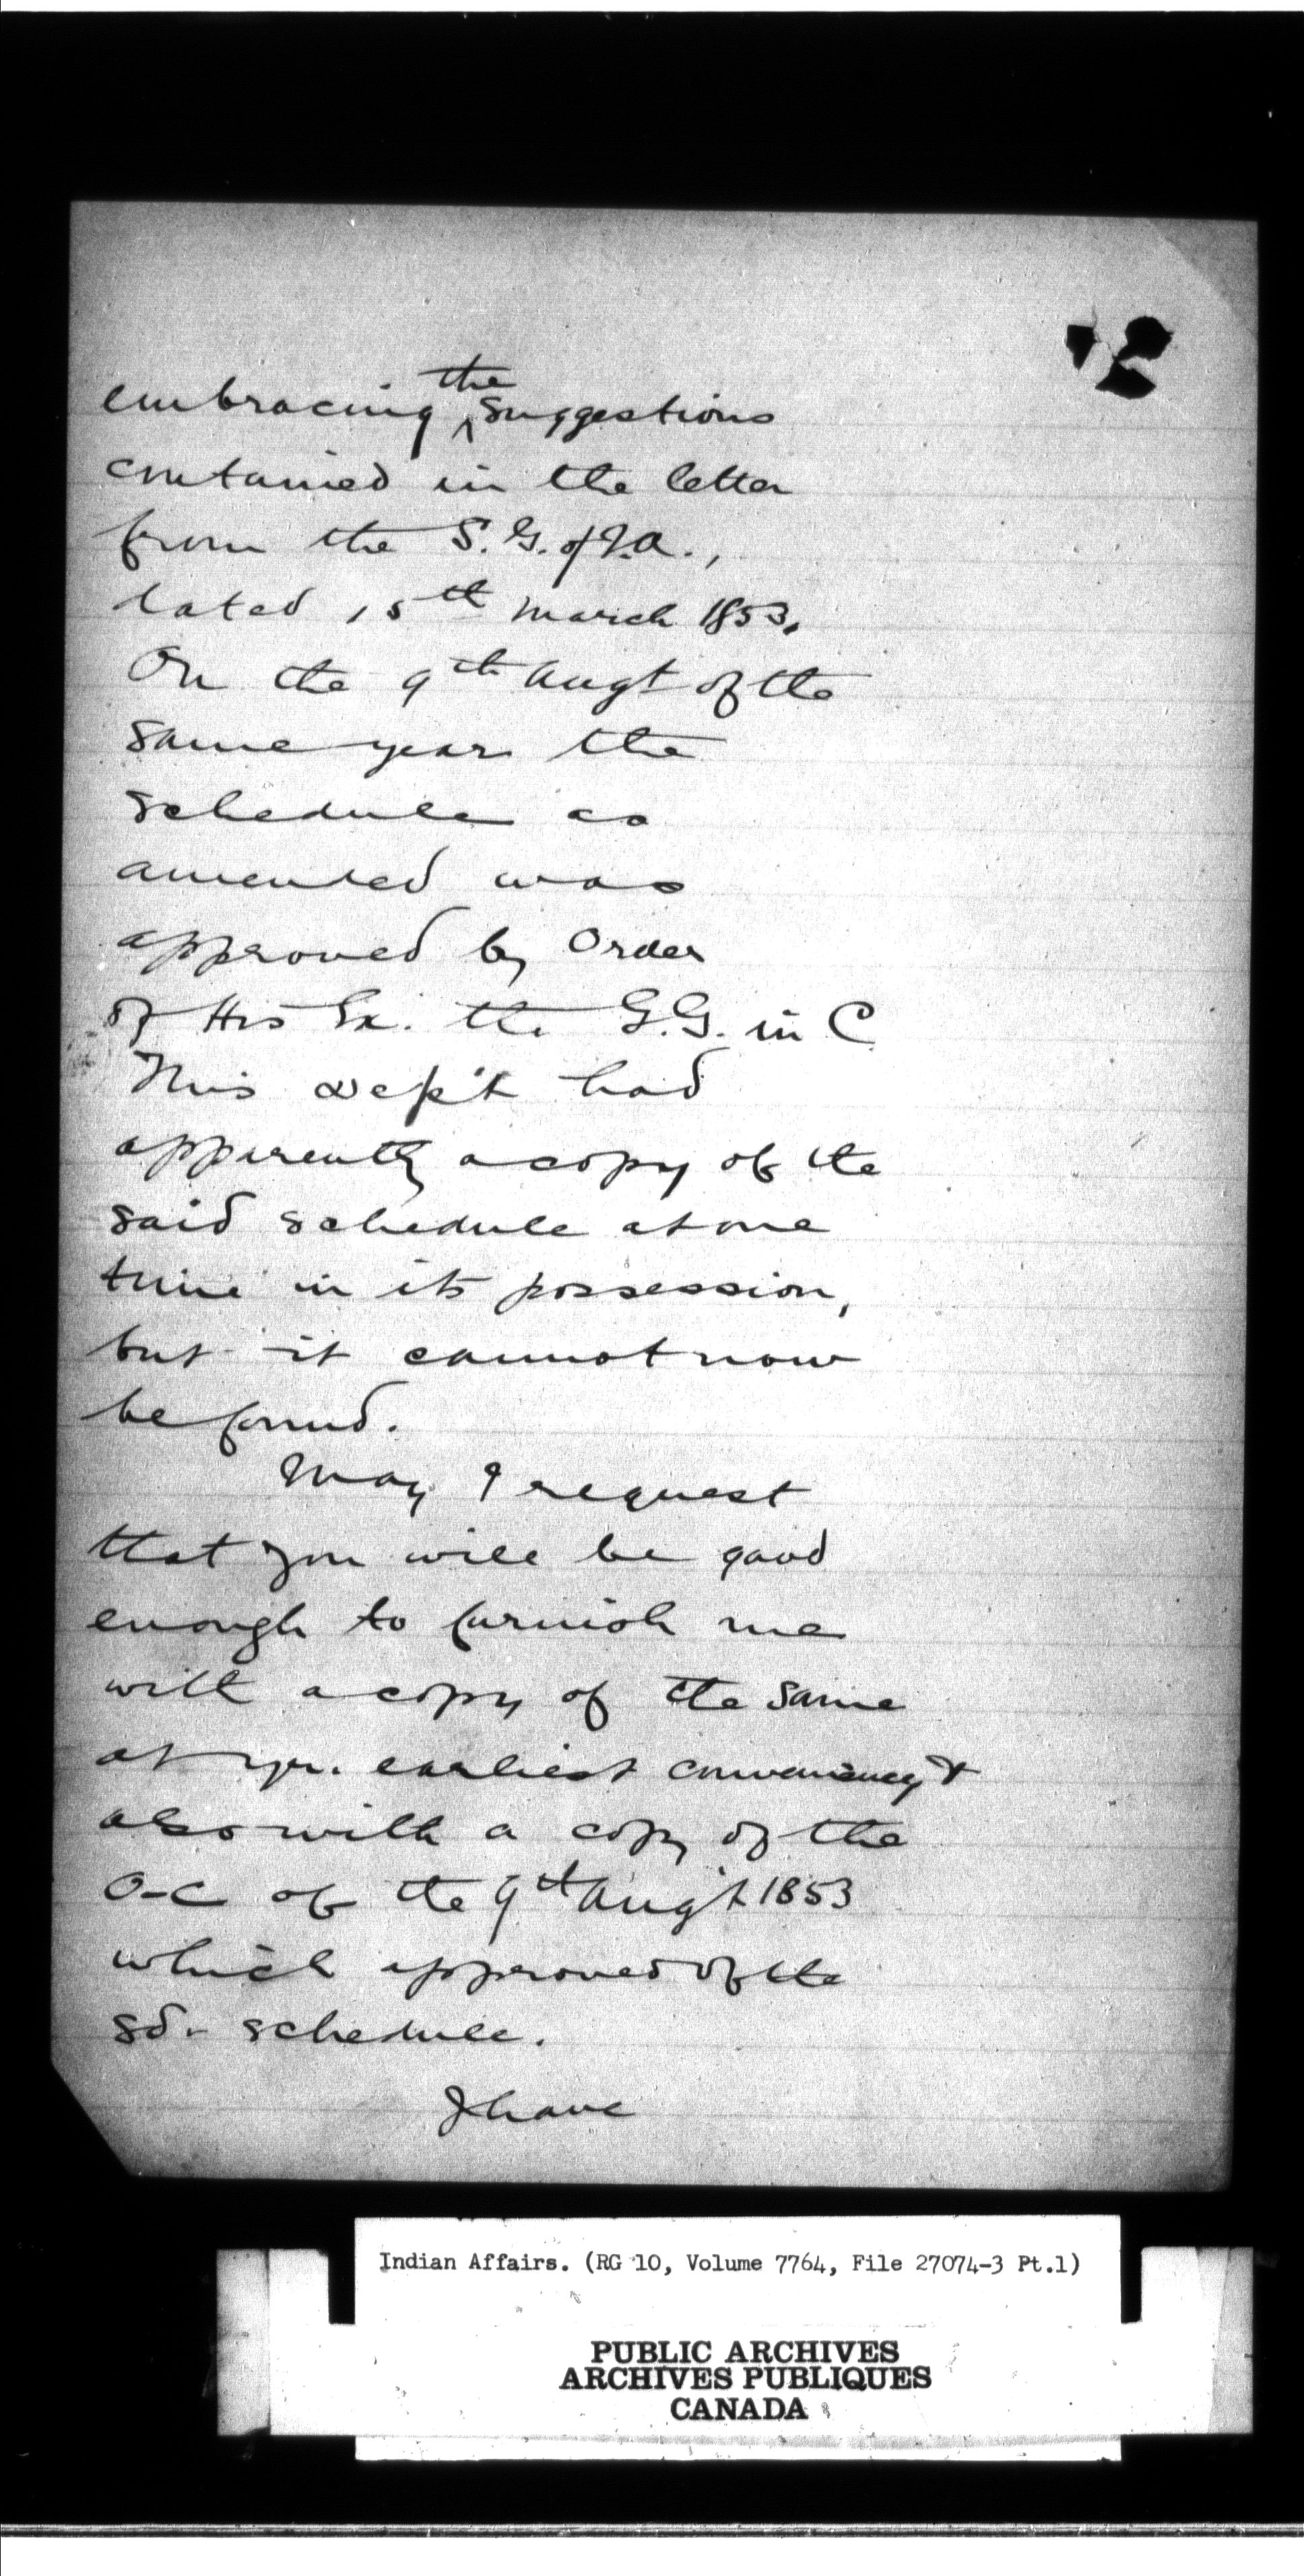 embracing the suggestions
contained in the letter
from the S.G. of I.A.,
dated 15th March 1853.
On the 9th Augt of the
same year the
schedule as
amended was
approved by Order
of His Ex. the G.G. in C
This Dep't had
apparently a copy of the
said schedule at one
time in its possession,
but it cannot now
be found.
May I request
that you will be good
enough to furnish me
with a copy of the same
at yr. earliest conveniency &
also with a copy of the
O-C of the 9th Aug't 1853
which approved of the
sd. schedule.
I have
Indian Affairs. (RG 10, Volume 7764, File 27074-3 Pt.1)
PUBLIC ARCHIVES
ARCHIVES PUBLIQUES
CANADA